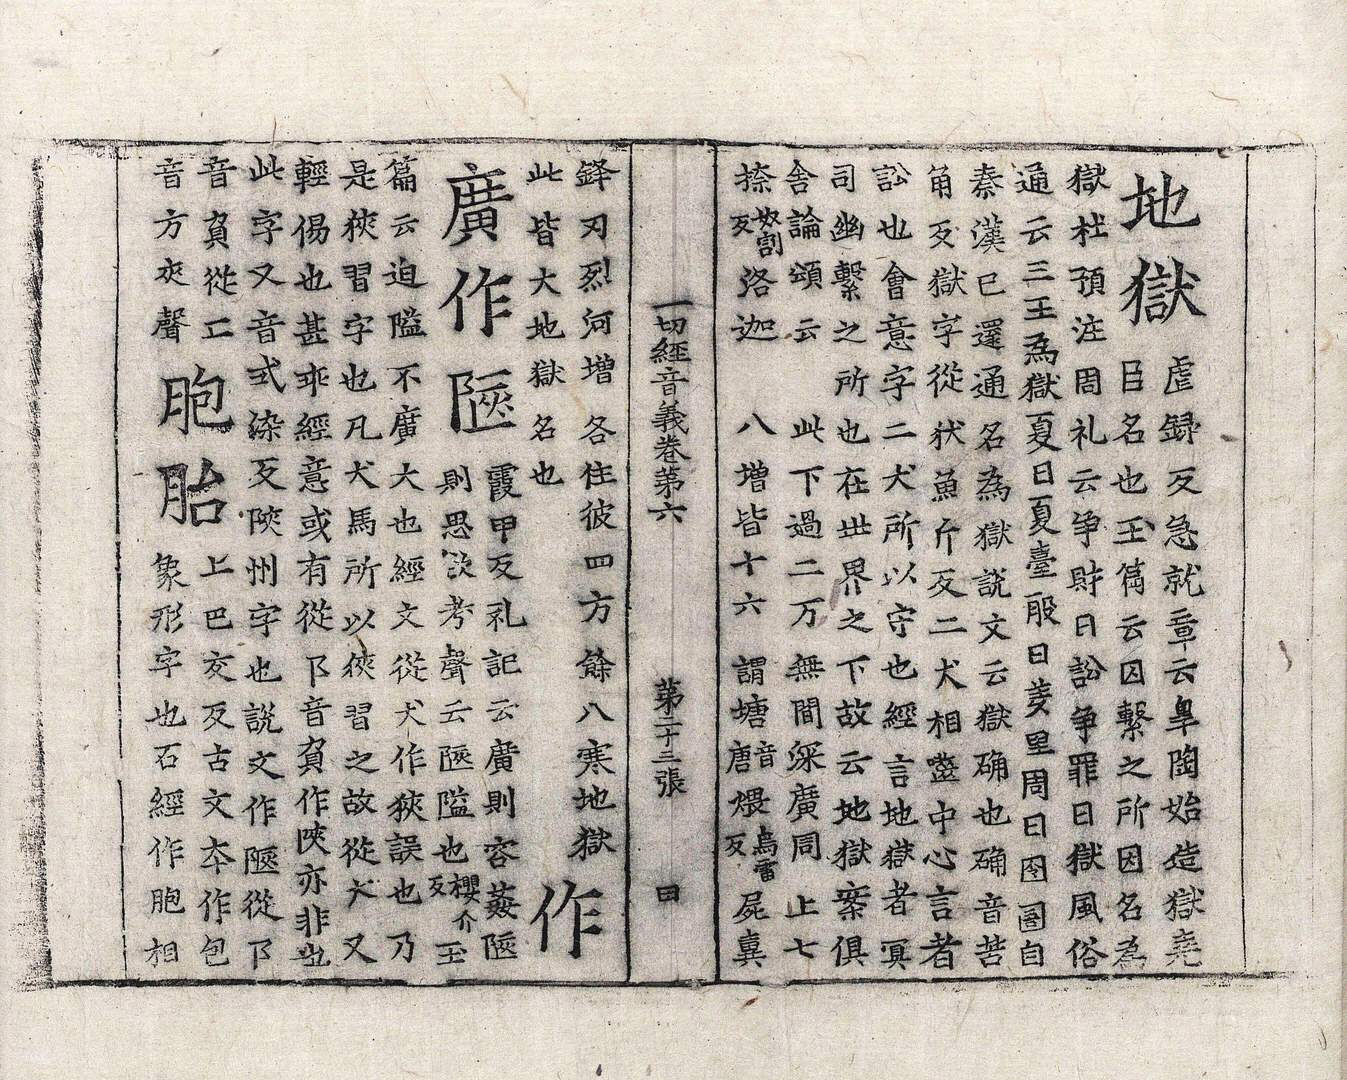 地獄 虐録反急就章云皐陶始造獄堯
臣名也玉篇云囚繫之所因名為
獄杜預注周礼云争財曰訟争罪曰獄風俗
通云三王為獄夏曰夏臺殷曰羑里周曰囹圄自
秦漢已還通名為獄說文云獄确也确音苦
角反獄字從㹜魚斤反二犬相齧中心言者
訟也會意字二犬所以守也經言地獄者冥
司幽繫之所也在世界之下故云地獄案俱
舍論頌云 此下過二万無間深廣同上七
捺奴割反洛迦 八增皆十六謂塘音唐煨烏雷反屍糞
一切經音義卷第六 第二十三張 田
鋒刃烈河增各住彼四方餘八寒地獄
此皆大地獄名也 作
廣作陿 霞甲反礼記云廣則容姦陿
則思欲考聲云陿隘也櫻介反玉
篇云迫隘不廣大也經文從犬作狹誤也乃
是狹習字也凡犬馬所以狹習之故從犬又
輕傷也甚乖經意或有從卪音負作陝亦非也
此字又音式染反陝州字也說文作陿從卪
音負從匚 上巴交反古文夲作包
音方夾聲 胞胎 象形字也石經作胞相